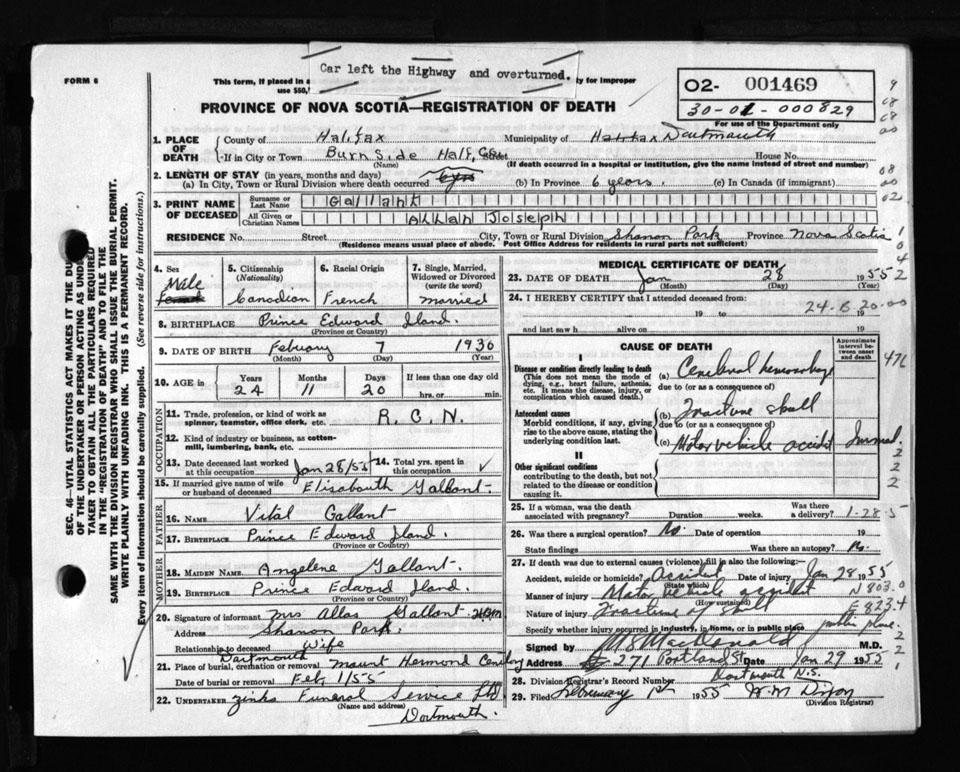 FORM 6
This form, if placed in a
Car left the Highway and overturned.
ty for improper
use $50,
O2- 001469
30-01-000829
For use of the Department only
PROVINCE OF NOVA SCOTIA—REGISTRATION OF DEATH
1. PLACE OF DEATH
County of Halifax Municipality of Halifax Dartmouth
If in City or Town Burnside Half, Co, Street House No.
(Name) (If death occurred in a hospital or institution, give the name instead of street and number)
2. LENGTH OF STAY (in years, months and days)
(a) In City, Town or Rural Division where death occurred 6 yrs (b) In Province 6 years. (c) In Canada (if immigrant)
3. PRINT NAME OF DECEASED
Surname or Last Name Gallant
All Given or Christian Names Allan Joseph
RESIDENCE No. Street City, Town or Rural Division Shanon Park Province Nova Scotia
(Residence means usual place of abode. Post Office Address for residents in rural parts not sufficient)
4. Sex Male Female
5. Citizenship (Nationality) Canadian
6. Racial Origin French
7. Single, Married, Widowed or Divorced (write the word) married
8. BIRTHPLACE Prince Edward Iland.
(Province or Country)
9. DATE OF BIRTH Febuary 7 1930
(Month) (Day) (Year)
10. AGE in Years Months Days If less than one day old
24 11 20 hrs. or min.
OCCUPATION
11. Trade, profession, or kind of work as spinner, teamster, office clerk, etc. R.C.N.
12. Kind of industry or business, as cotton-mill, lumbering, bank, etc.
13. Date deceased last worked at this occupation Jan 28/55 14. Total yrs. spent in this occupation
15. If married give name of wife or husband of deceased Elisabouth Gallant.
FATHER
16. NAME Vital Gallant
17. BIRTHPLACE Prince Edward Iland.
(Province or Country)
MOTHER
18. MAIDEN NAME Angelene Gallant.
19. BIRTHPLACE Prince Edward Iland
(Province or Country)
20. Signature of informant Mrs Allan Gallant
Address Shanon Park.
Relationship to deceased Wife
21. Place of burial, cremation or removal Dartmouth Mount Hermond Cemtery
Date of burial or removal Feb 1/55
22. UNDERTAKER Zinks Funeral Service Ltd
(Name and address)
Dartmouth.
MEDICAL CERTIFICATE OF DEATH
23. DATE OF DEATH Jan 28 1955
(Month) (Day) (Year)
24. I HEREBY CERTIFY that I attended deceased from:
19 to 19
24-6-20-00
and last saw h alive on 19
CAUSE OF DEATH
Approximate interval between onset and death
I
Disease or condition directly leading to death
(This does not mean the mode of dying, e.g., heart failure, asthenia, etc. It means the disease, injury, or complication which caused death.)
(a) Cerebral hemorrhage
due to (or as a consequence of)
Antecedent causes
Morbid conditions, if any, giving rise to the above cause, stating the underlying condition last.
(b) Fracture skull
due to (or as a consequence of)
(c) Motor vehicle accident Immed.
II
Other significant conditions
contributing to the death, but not related to the disease or condition causing it.
25. If a woman, was the death associated with pregnancy? Duration weeks. Was there a delivery? 1-28-5
26. Was there a surgical operation? No Date of operation 19
State findings Was there an autopsy? No.
27. If death was due to external causes (violence) fill in also the following:
Accident, suicide or homicide? Accident Date of injury Jan 28 1955
(State which)
Manner of injury Motor vehicle accident N803.0
(How sustained)
Nature of injury Fracture of skull E823.4
Specify whether injury occurred in industry, in home, or in public place public place.
Signed by M S MacDonald M.D.
Address 271 Portland St Date Jan 29 1955
Dartmouth N.S.
28. Division Registrar's Record Number
29. Filed February 1st 1955 W.M Dixon
(Division Registrar)
SEC. 46—VITAL STATISTICS ACT MAKES IT THE DUTY
OF THE UNDERTAKER OR PERSON ACTING AS UNDER-
TAKER TO OBTAIN ALL THE PARTICULARS REQUIRED
IN THE "REGISTRATION OF DEATH" AND TO FILE THE
SAME WITH THE DIVISION REGISTRAR WHO SHALL ISSUE THE BURIAL PERMIT.
WRITE PLAINLY WITH UNFADING INK. THIS IS A PERMANENT RECORD.
Every item of information should be carefully supplied. (See reverse side for instructions.)